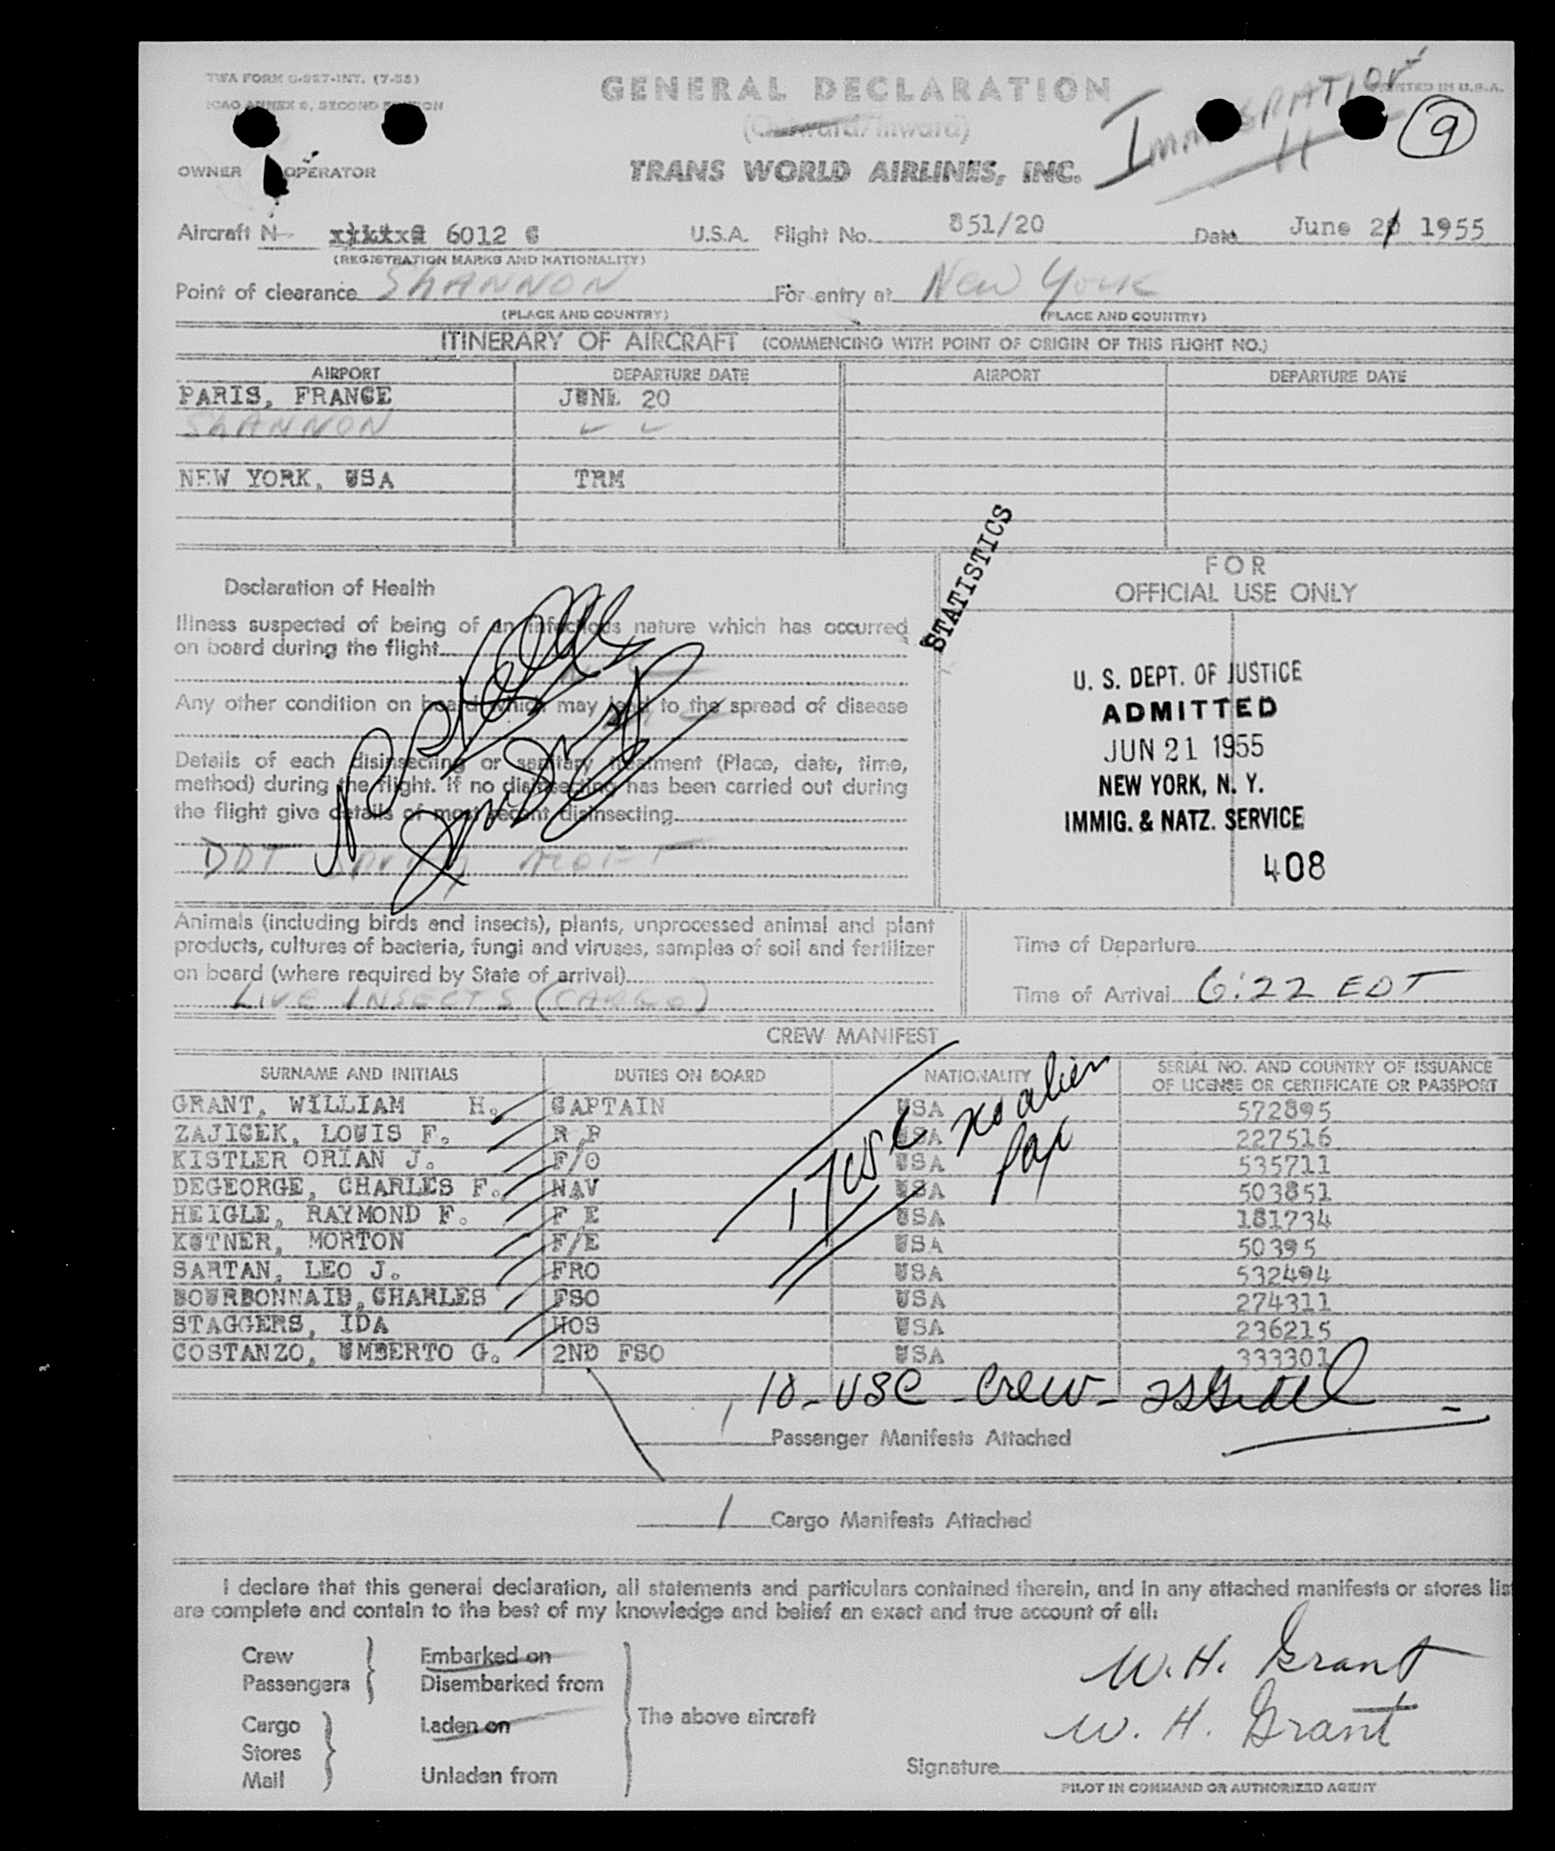 TWA FORM G-227-INT. (7-55)
ICAO ANNEX 9, SECOND EDITION
GENERAL DECLARATION
PRINTED IN U.S.A.
(Outward/Inward)
IMMIGRATION
9
OWNER OPERATOR
TRANS WORLD AIRLINES, INC.
Aircraft N 6012 C U.S.A. Flight No. 851/20 Date June 21 1955
(REGISTRATION MARKS AND NATIONALITY)
Point of clearance SHANNON For entry at New York
(PLACE AND COUNTRY) (PLACE AND COUNTRY)
ITINERARY OF AIRCRAFT (COMMENCING WITH POINT OF ORIGIN OF THIS FLIGHT NO.)
AIRPORT DEPARTURE DATE AIRPORT DEPARTURE DATE
PARIS, FRANCE JUNE 20
SHANNON
NEW YORK, USA TRM
STATISTICS
FOR
OFFICIAL USE ONLY
Declaration of Health
Illness suspected of being of an infectious nature which has occurred
on board during the flight
Any other condition on board which may lead to the spread of disease
Details of each disinsecting or sanitary treatment (Place, date, time,
method) during the flight. If no disinsecting has been carried out during
the flight give details of most recent disinsecting
DDT
U. S. DEPT. OF JUSTICE
ADMITTED
JUN 21 1955
NEW YORK, N. Y.
IMMIG. & NATZ. SERVICE
408
Animals (including birds and insects), plants, unprocessed animal and plant
products, cultures of bacteria, fungi and viruses, samples of soil and fertilizer
on board (where required by State of arrival)
LIVE INSECTS (CARGO)
Time of Departure
Time of Arrival 6:22 EDT
CREW MANIFEST
SURNAME AND INITIALS DUTIES ON BOARD NATIONALITY SERIAL NO. AND COUNTRY OF ISSUANCE
OF LICENSE OR CERTIFICATE OR PASSPORT
GRANT, WILLIAM H. CAPTAIN USA 572895
ZAJICEK, LOUIS F. R P USA 227516
KISTLER ORIAN J. F/O USA 535711
DEGEORGE, CHARLES F. NAV USA 503851
HEIGLE, RAYMOND F. F E USA 181734
KUTNER, MORTON F/E USA 50395
SARTAN, LEO J. FRO USA 532494
BOURBONNAIB, CHARLES FSO USA 274311
STAGGERS, IDA HOS USA 236215
COSTANZO, UMBERTO G. 2ND FSO USA 333301
17 USC no alien pax
10 - USC - Crew -
1 Passenger Manifests Attached
1 Cargo Manifests Attached
I declare that this general declaration, all statements and particulars contained therein, and in any attached manifests or stores lis
are complete and contain to the best of my knowledge and belief an exact and true account of all:
Crew Embarked on
Passengers Disembarked from
Cargo Laden on The above aircraft
Stores
Mail Unladen from
W. H. Grant
W. H. Grant
Signature
PILOT IN COMMAND OR AUTHORIZED AGENT